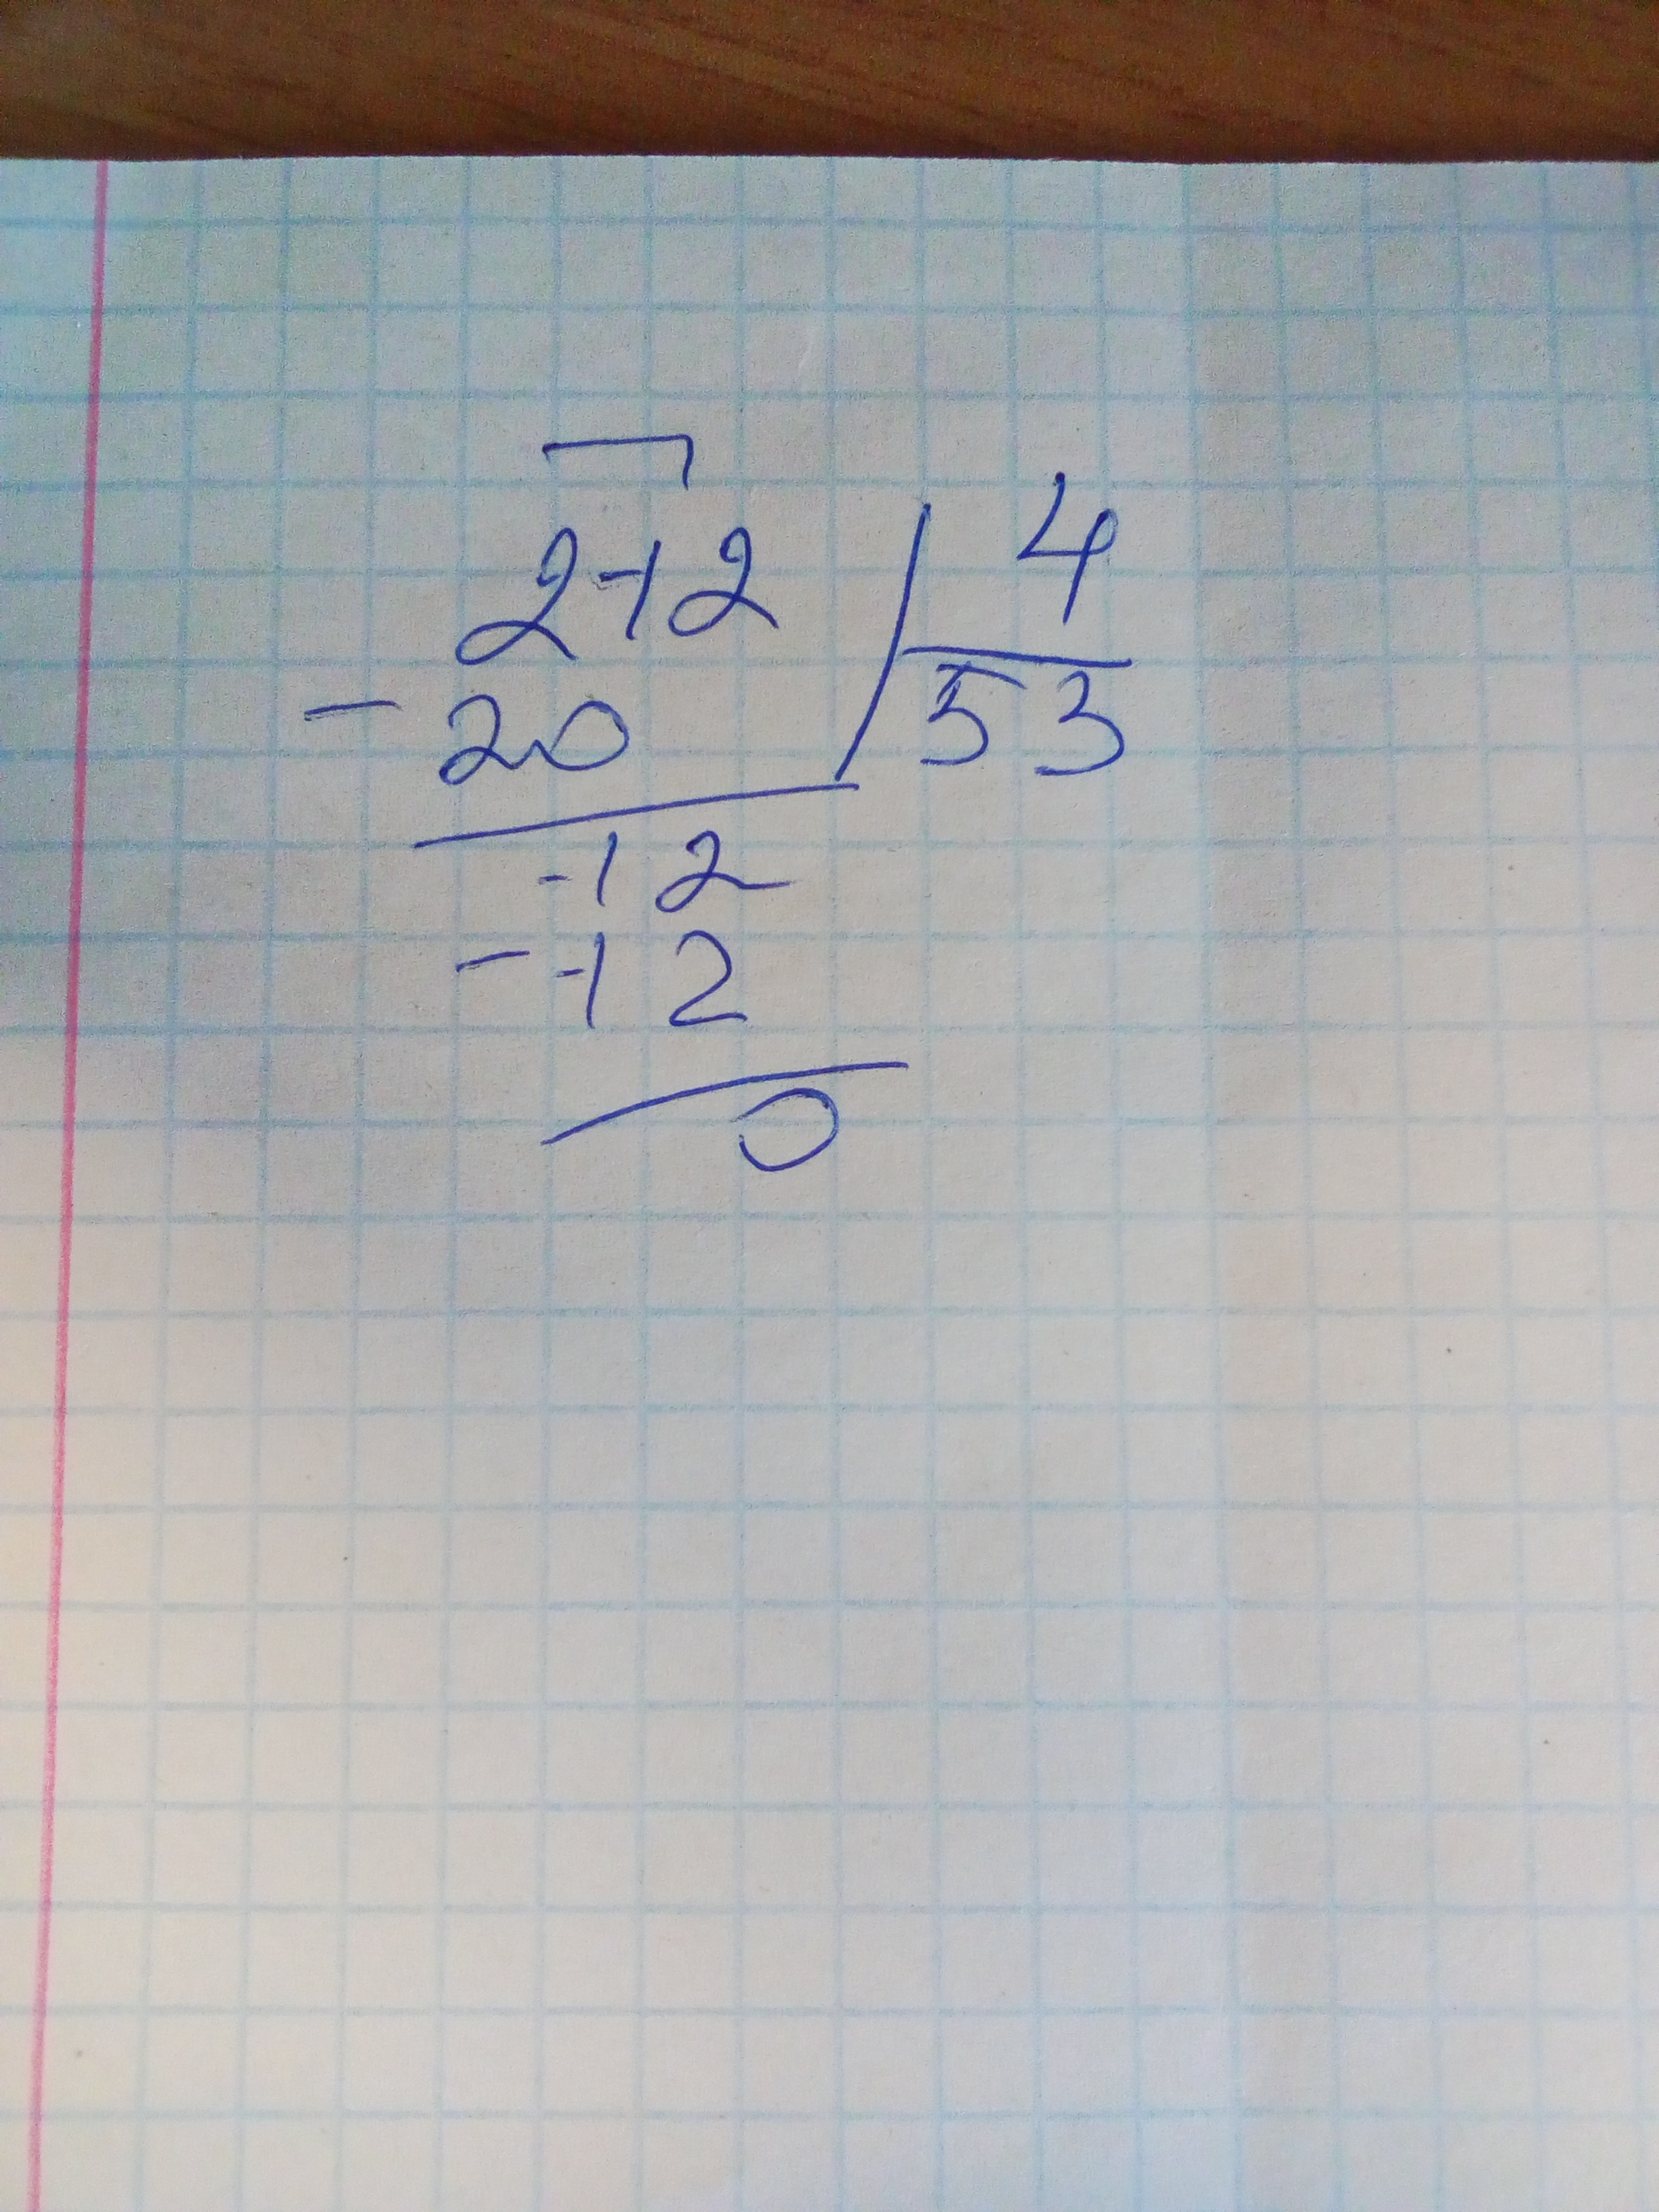 212 | 4
- 20 | 53
12
- 12
0